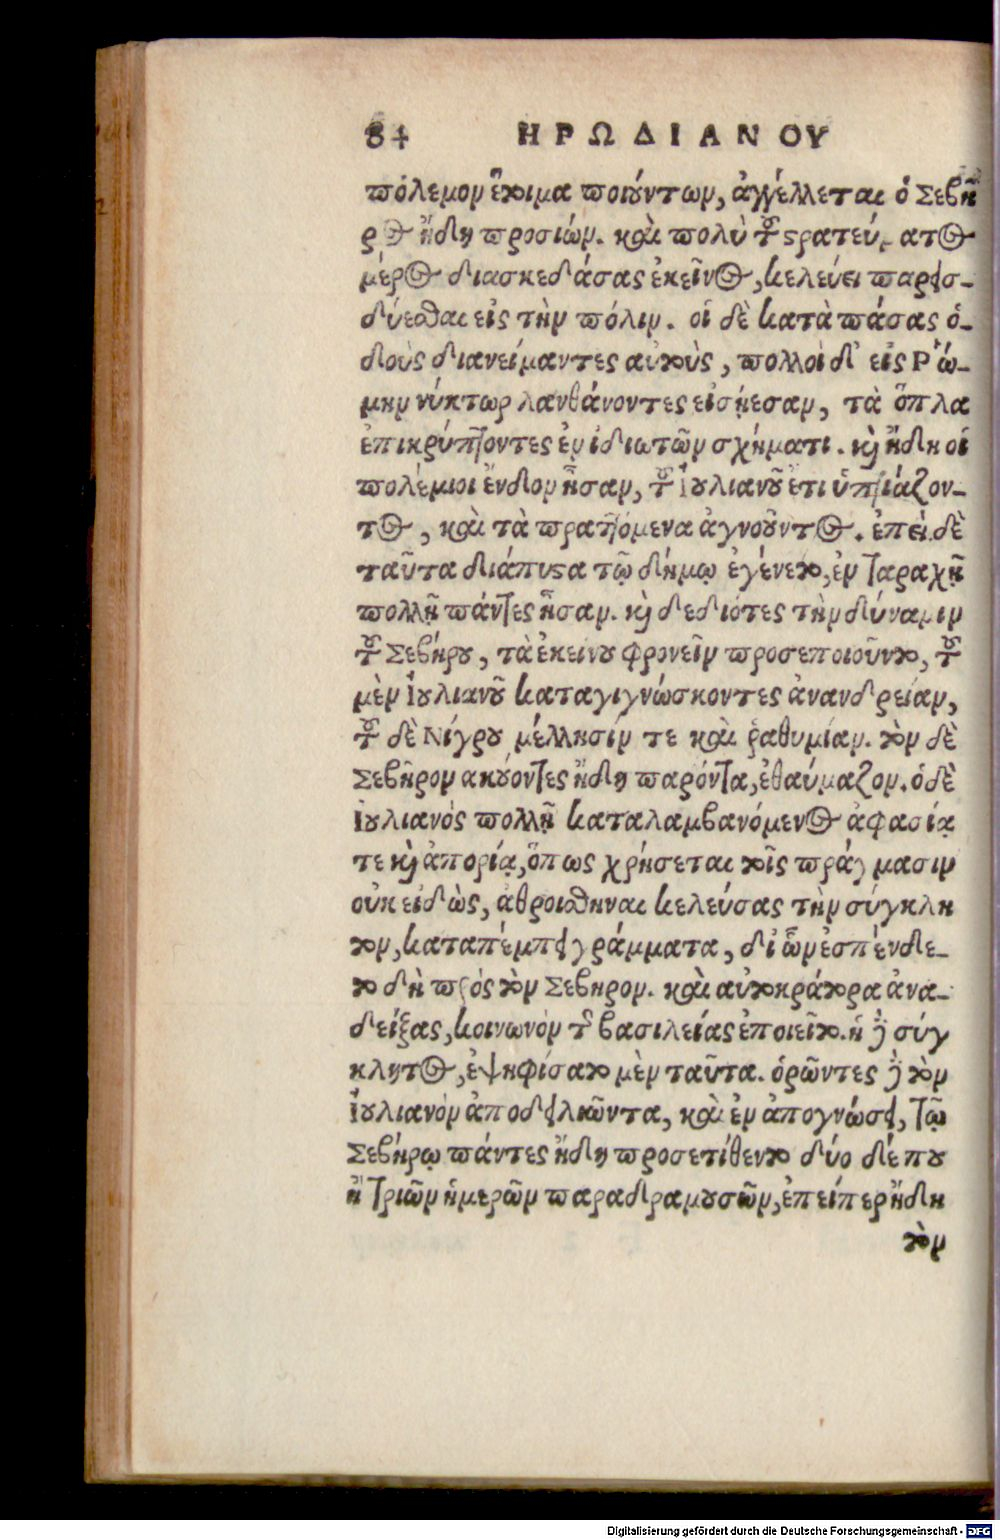 84 ΗΡΩΔΙΑΝΟΥ
πόλεμον ἕτοιμα ποιούντων, ἀγγέλλεται ὁ Σεβῆ
ρος ἤδη προσιών. καὶ πολὺ τοῦ στρατεύματος
μέρος διασκεδάσας ἐκεῖνος, κελεύει παρεισ-
δύεσθαι εἰς τὴν πόλιν. οἱ δὲ κατὰ πάσας ὁ-
δοὺς διανείμαντες αὑτοὺς, πολλοὶ δ' εἰς Ῥώ-
μην νύκτωρ λανθάνοντες εἰσῄεσαν, τὰ ὅπλα
ἐπικρύπτοντες ἐν ἰδιωτῶν σχήματι. καὶ ἤδη οἱ
πολέμιοι ἔνδον ἦσαν, τοῦ Ἰουλιανοῦ ἔτι ὑπτιάζον-
τος, καὶ τὰ πραττόμενα ἀγνοοῦντος. ἐπεὶ δὲ
ταῦτα διάπυστα τῷ δήμῳ ἐγένετο, ἐν ταραχῇ
πολλῇ πάντες ἦσαν. καὶ δεδιότες τὴν δύναμιν
τοῦ Σεβήρου, τὰ ἐκείνου φρονεῖν προσεποιοῦντο, τοῦ
μὲν Ἰουλιανοῦ καταγιγνώσκοντες ἀνανδρείαν,
τοῦ δὲ Νίγρου μέλλησίν τε καὶ ῥαθυμίαν. τὸν δὲ
Σεβῆρον ακούοντες ἤδη παρόντα, ἐθαύμαζον. ὁ δὲ
Ἰουλιανός πολλῇ καταλαμβανόμενος ἀφασίᾳ
τε καὶ ἀπορίᾳ, ὅπως χρήσεται τοῖς πράγμασιν
οὐκ εἰδὼς, ἀθροισθηναι κελεύσας τὴν σύγκλη
τον, καταπέμπει γράμματα, δι' ὧν ἐσπένδε-
το δὴ πρὸς τὸν Σεβηρον. καὶ αὐτοκράτορα ἀνα-
δείξας, κοινωνὸν τῆς βασιλείας ἐποιεῖτο. ἡ δὲ σύγ
κλητος, ἐψηφίσατο μὲν ταῦτα. ὁρῶντες δὲ τὸν
Ἰουλιανὸν ἀποδειλιῶντα, καὶ ἐν ἀπογνώσει, τῷ
Σεβήρῳ πάντες ἤδη προσετίθεντο δύο δέ που
ἢ τριῶν ἡμερῶν παραδραμουσῶν, ἐπείπερ ἤδη
τὸν
Digitalisierung gefördert durch die Deutsche Forschungsgemeinschaft - DFG